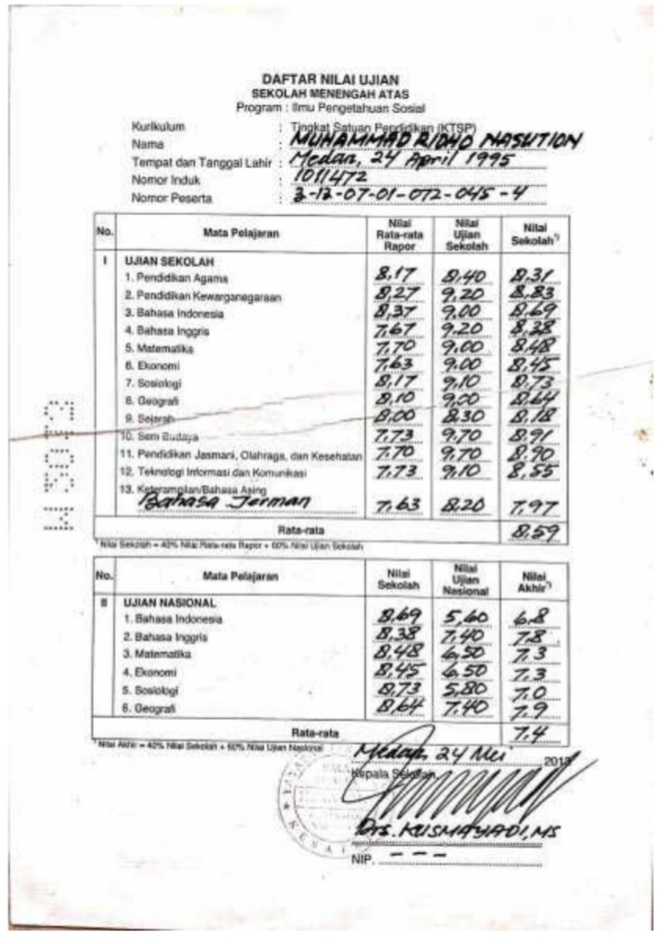 DAFTAR NILAI UJIAN
SEKOLAH MENENGAH ATAS
Program : Ilmu Pengetahuan Sosial
Kurikulum : Tingkat Satuan Pendidikan (KTSP)
Nama : MUHAMMAD RIDHO NASUTION
Tempat dan Tanggal Lahir : Medan, 24 April 1995
Nomor Induk : 1011472
Nomor Peserta : 3-12-07-01-072-045-4
No. Mata Pelajaran Nilai Rata-rata Rapor Nilai Ujian Sekolah Nilai Sekolah*)
I UJIAN SEKOLAH
1. Pendidikan Agama 8,17 8,40 8,31
2. Pendidikan Kewarganegaraan 8,27 9,20 8,83
3. Bahasa Indonesia 8,37 9,00 8,69
4. Bahasa Inggris 7,67 9,20 8,38
5. Matematika 7,70 9,00 8,48
6. Ekonomi 7,63 9,00 8,45
7. Sosiologi 8,17 9,10 8,73
8. Geografi 8,10 9,00 8,64
9. Sejarah 8,00 8,30 8,18
10. Seni Budaya 7,73 9,70 8,91
11. Pendidikan Jasmani, Olahraga, dan Kesehatan 7,70 9,70 8,90
12. Teknologi Informasi dan Komunikasi 7,73 9,10 8,55
13. Keterampilan/Bahasa Asing
Bahasa Jerman 7,63 8,20 7,97
Rata-rata 8,59
*) Nilai Sekolah = 40% Nilai Rata-rata Rapor + 60% Nilai Ujian Sekolah
No. Mata Pelajaran Nilai Sekolah Nilai Ujian Nasional Nilai Akhir*)
II UJIAN NASIONAL
1. Bahasa Indonesia 8,69 5,60 6,8
2. Bahasa Inggris 8,38 7,40 7,8
3. Matematika 8,48 6,50 7,3
4. Ekonomi 8,45 6,50 7,3
5. Sosiologi 8,73 5,80 7,0
6. Geografi 8,64 7,40 7,9
Rata-rata 7,4
*) Nilai Akhir = 40% Nilai Sekolah + 60% Nilai Ujian Nasional
Medan, 24 Mei 2013
Kepala Sekolah,
Drs. KUSMAYADI, MS
NIP. - - -